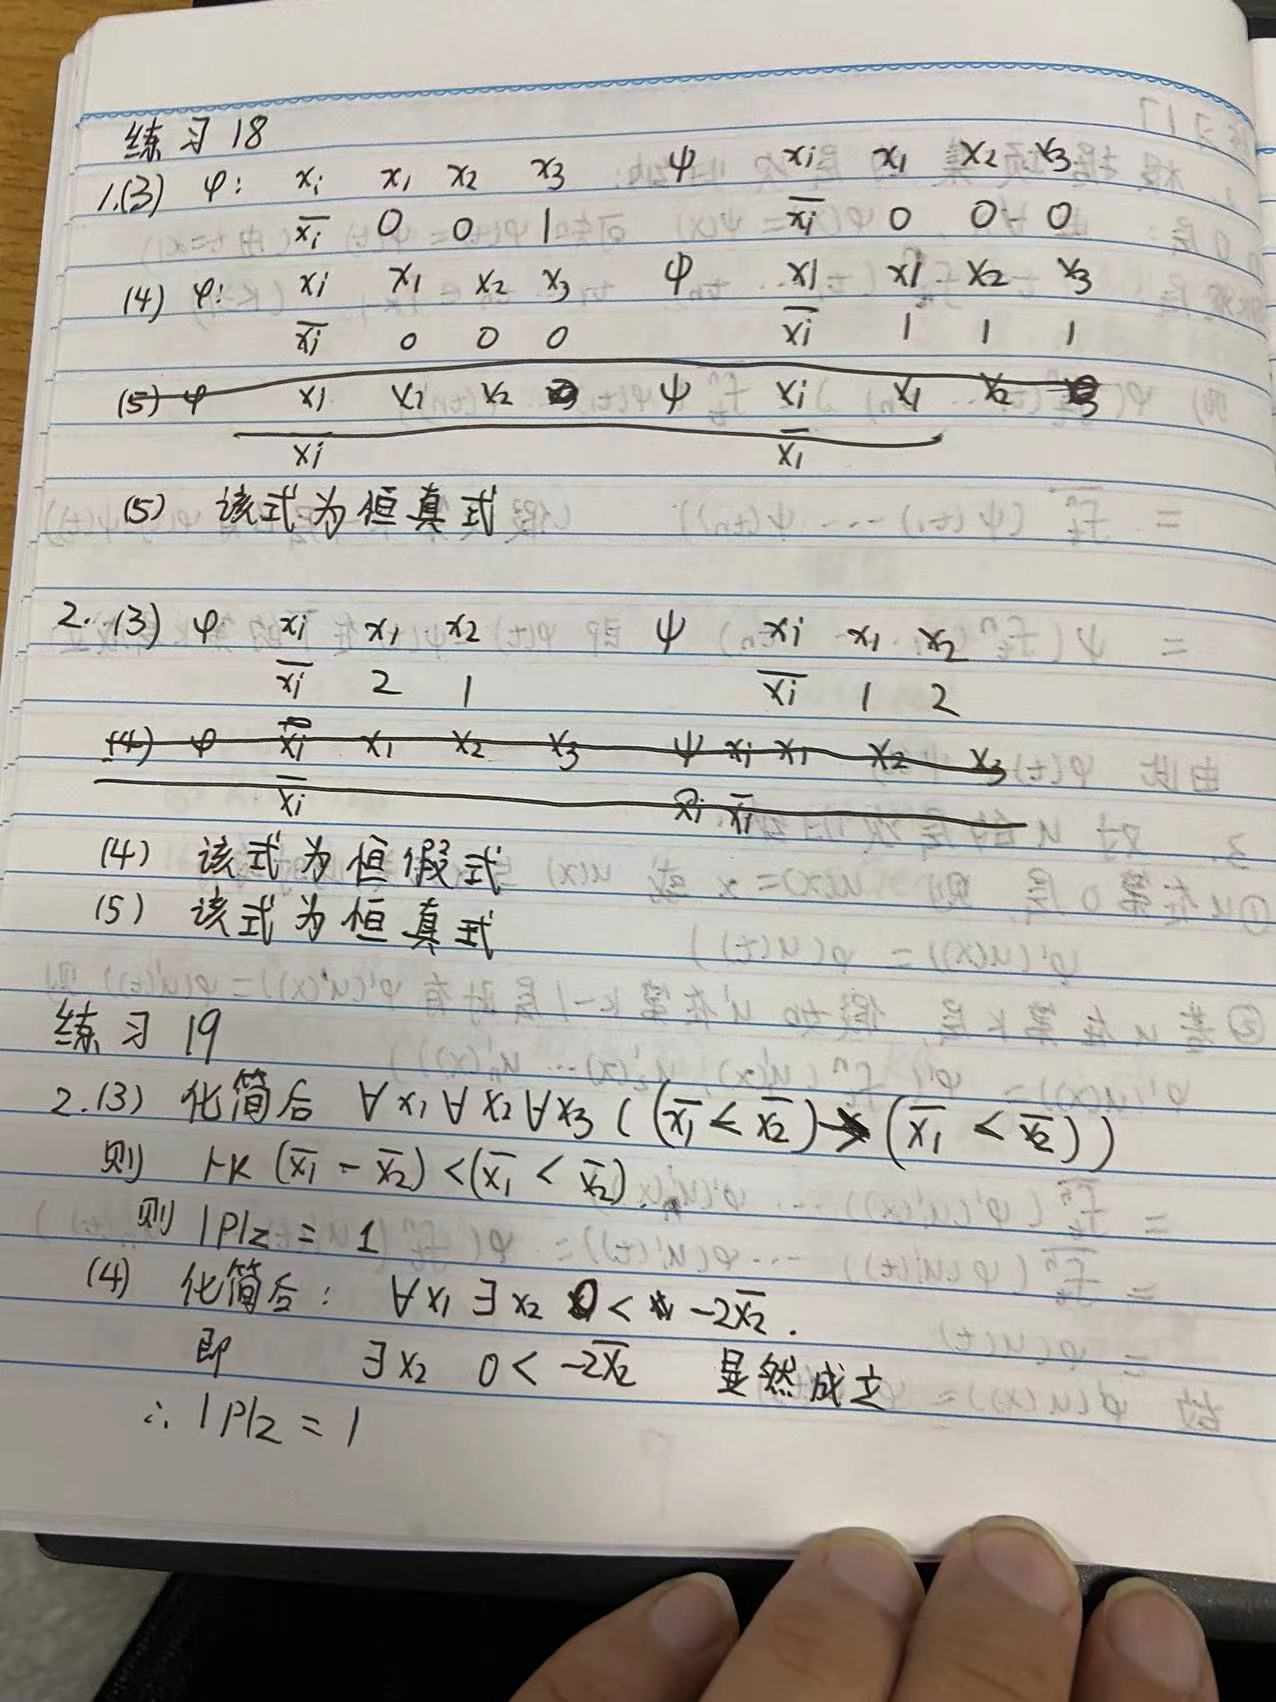 练习 18
1.(3) φ: xi x1 x2 x3 ψ xi x1 x2 x3
x̅i̅ 0 0 1 x̅i̅ 0 0 0
(4) φ: xi x1 x2 x3 ψ x1 x1 x2 x3
x̅i̅ 0 0 0 x̅i̅ 1 1 1
(5) φ x1 x2 x2 ψ xi x1 x2
xi x̅1̅
(5) 该式为恒真式
2. (3) φ xi x1 x2 ψ xi x1 x2
x̅i̅ 2 1 x̅i̅ 1 2
(4) φ xi x1 x2 x3 ψ xi x1 x2 x3
x̅i̅ x̅i̅
(4) 该式为恒假式
(5) 该式为恒真式
练习 19
2.(3) 化简后 ∀x1∀x2∀x3((x̅1̅ < x̅2̅)→(x̅1̅ < x̅2̅))
则 (x̅1̅ - x̅2̅) < (x̅1̅ < x̅2̅).
则 |P|z = 1
(4) 化简后: ∀x1∃x2 0 < -2x̅2̅.
即 ∃x2 0 < -2x̅2̅ 显然成立
∴ |P|z = 1